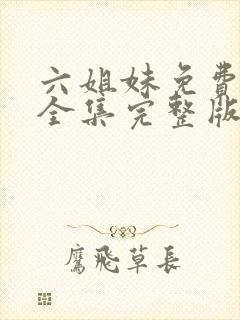 六姐妹免費
全集完整版
鷹飛草長